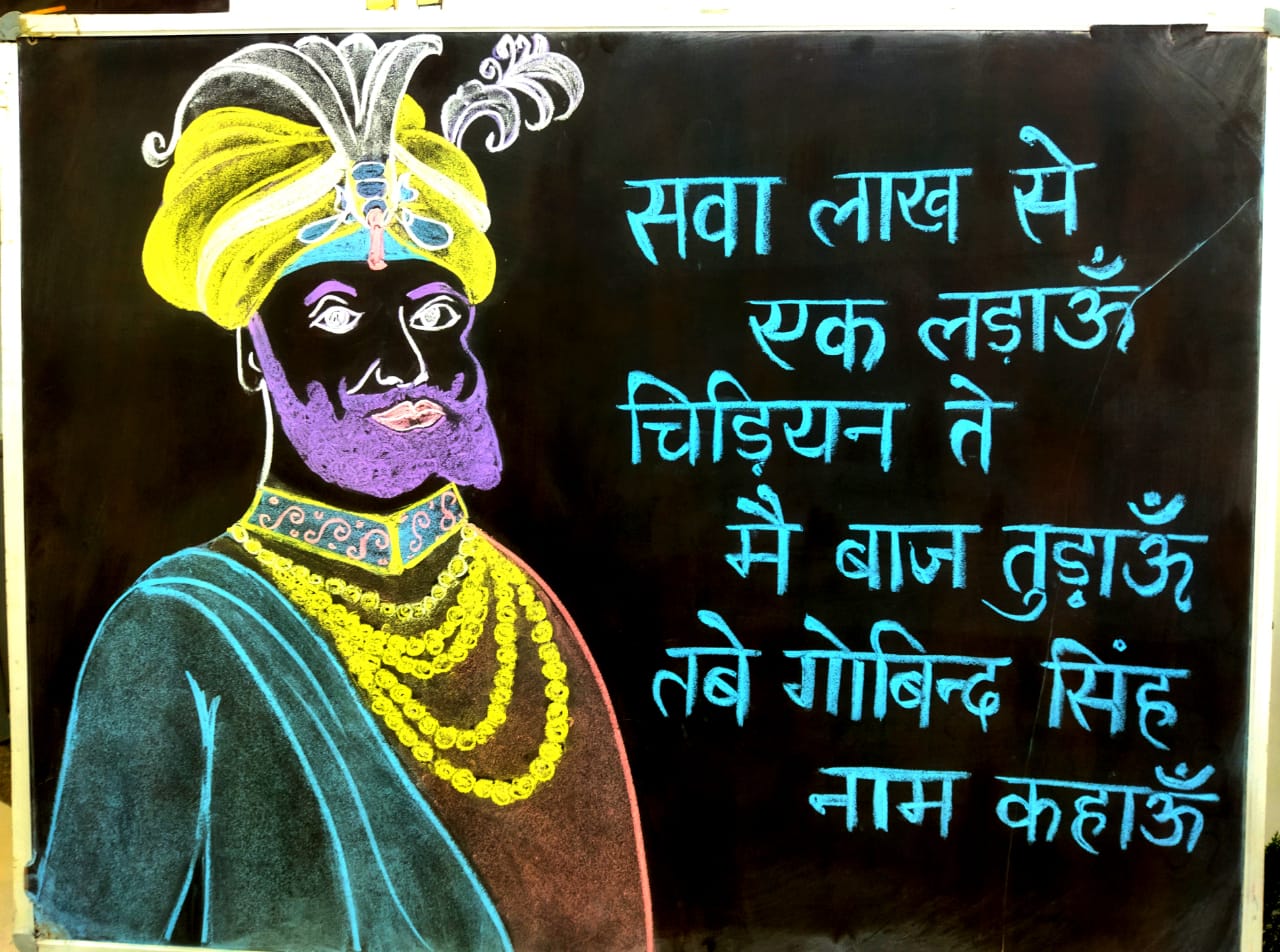 सवा लाख से
एक लड़ाऊँ
चिड़ियन ते
मै बाज तुड़ाऊँ
तबे गोबिन्द सिंह
नाम कहाऊँ